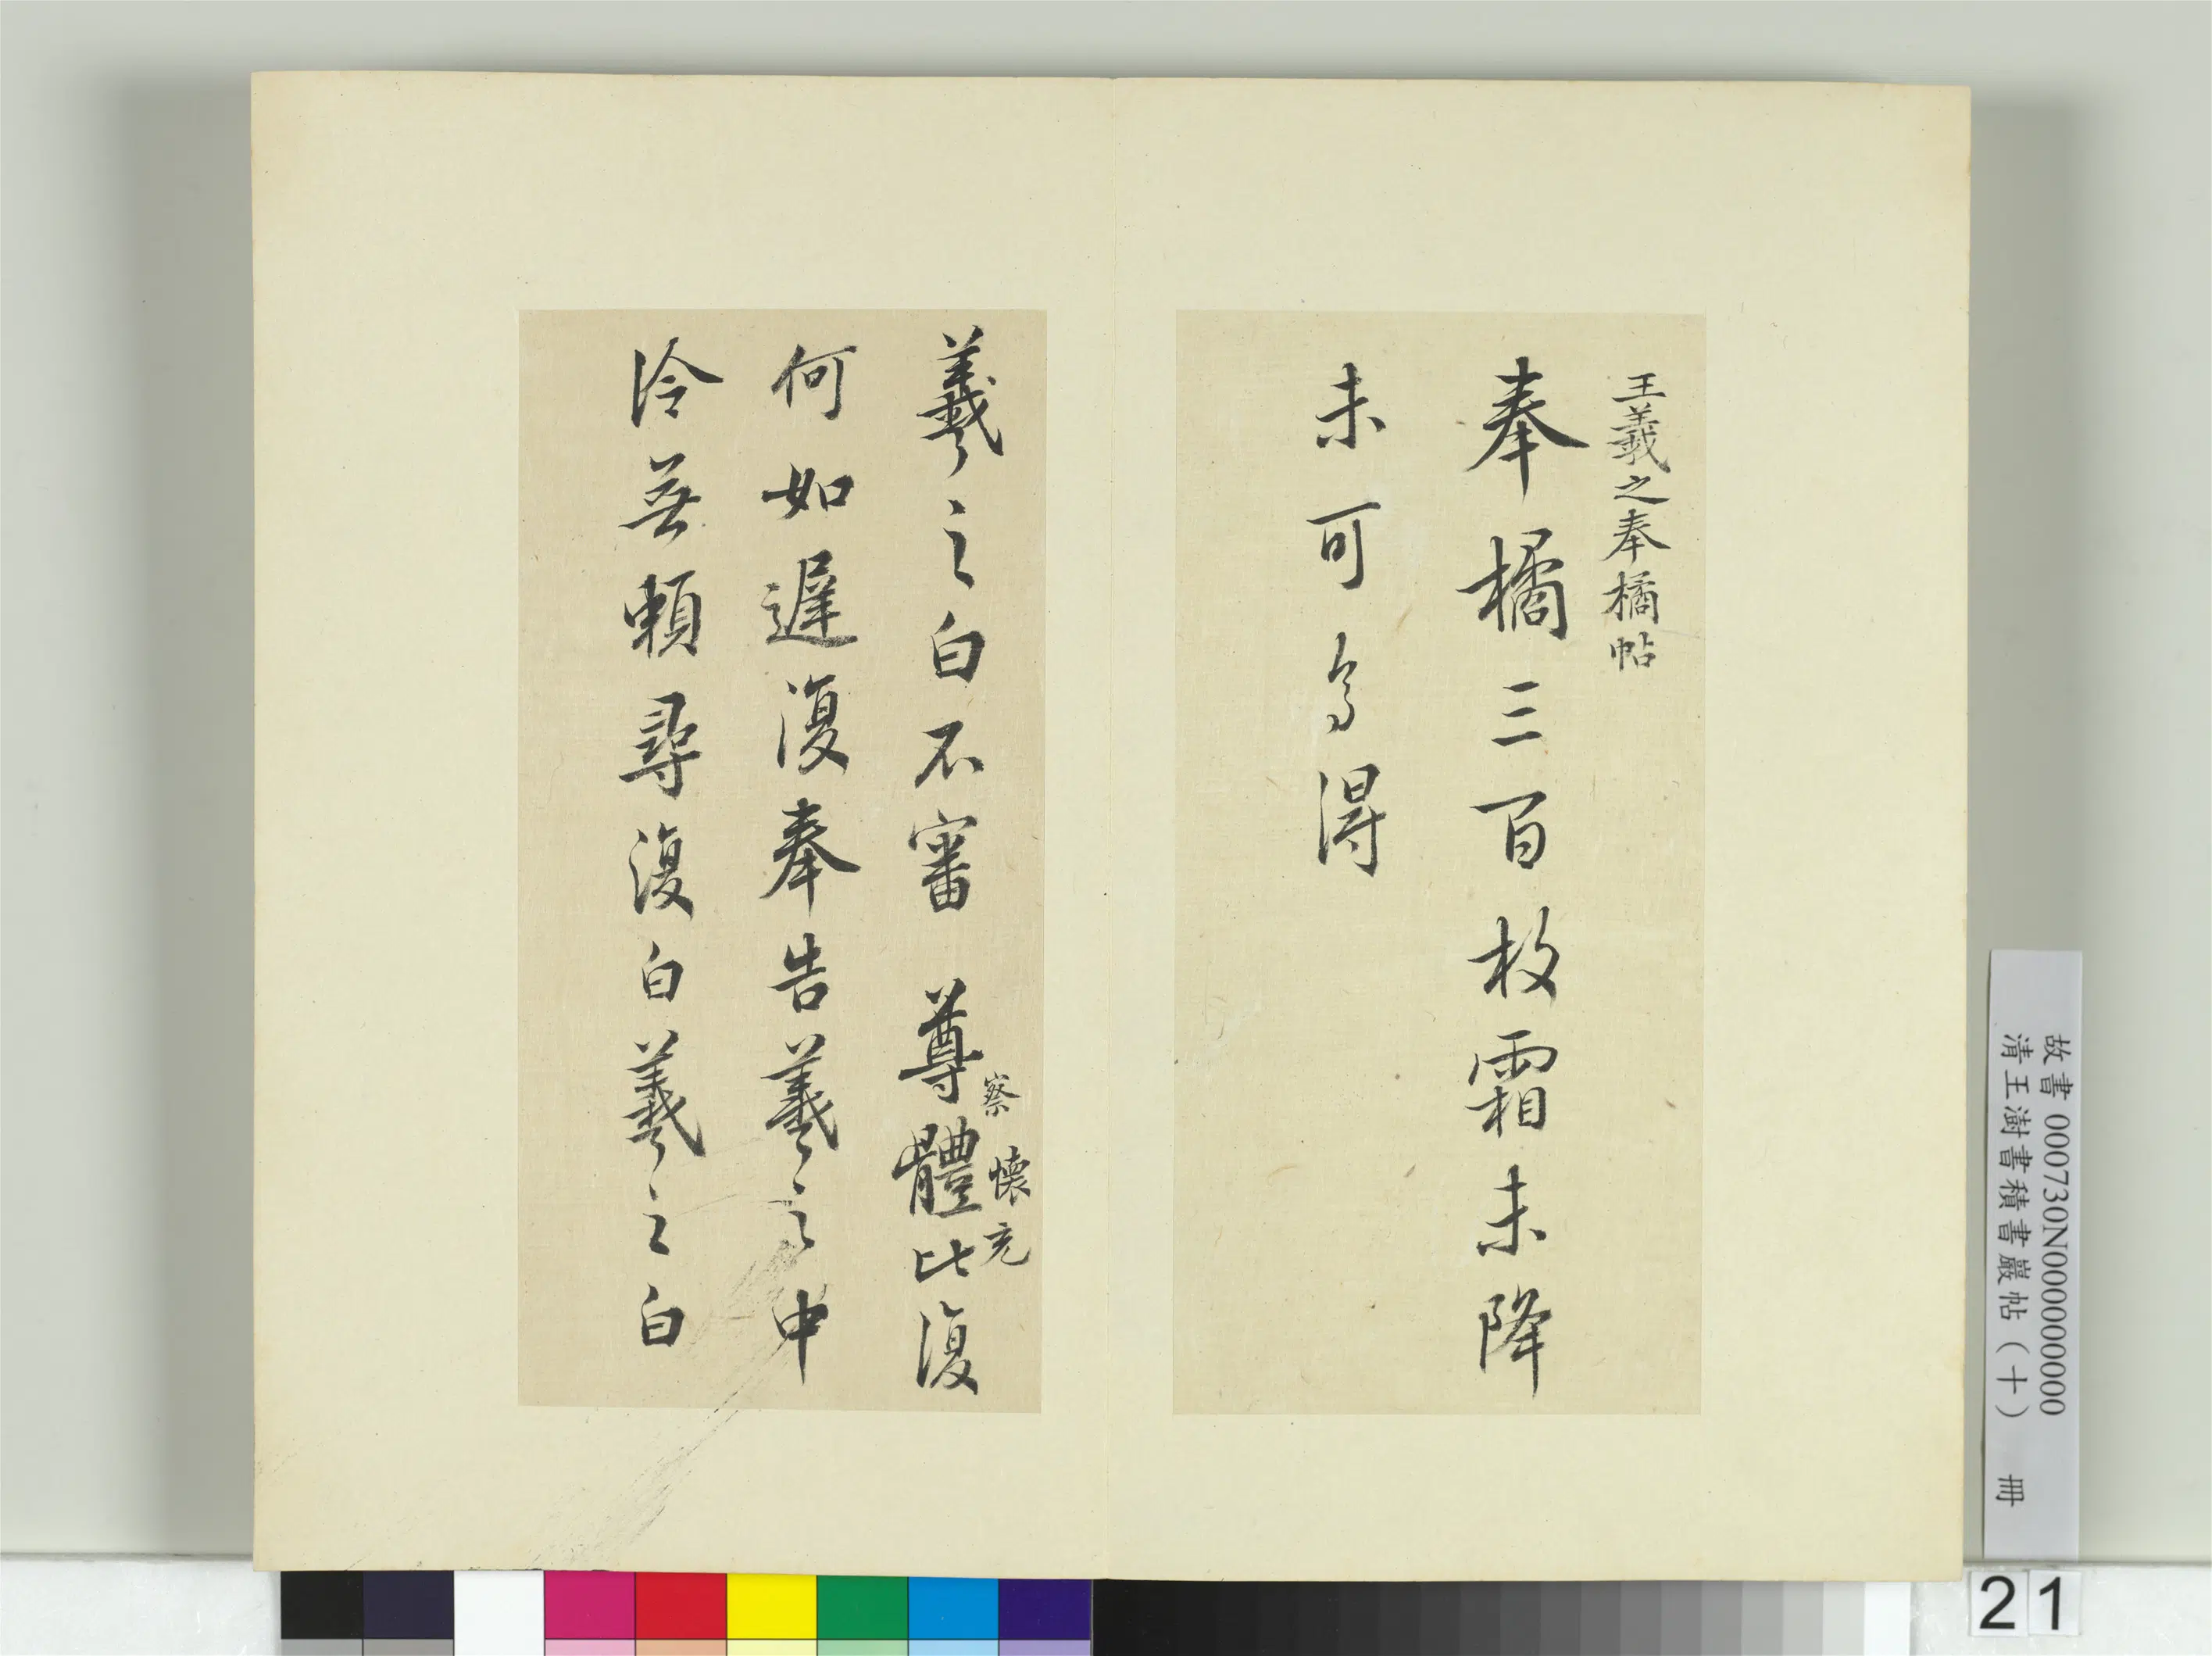 王羲之奉橘帖
奉橘三百枚霜未降
未可多得
察 懷充
羲之白不審 尊體比復
何如遲復奉告羲之中
冷無賴尋復白羲之白
故書 000730N000000000
清王澍書積書巖帖（十） 冊
21